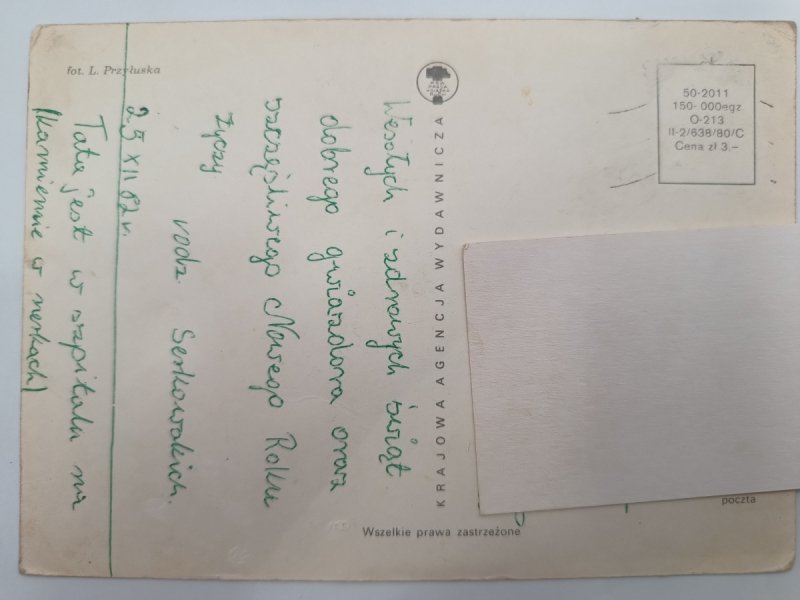 Wesołych i zdrowych świąt
dobrego gwiazdora oraz
szczęśliwego Nowego Roku
życzy
rodz. Serkowskich.
25 XII 82 r.
Tata jest w szpitalu na
(kamienie w nerkach)
fot. L. Przyłuska
KRAJOWA AGENCJA WYDAWNICZA
50-2011
150-000egz
O-213
II-2/638/80/C
Cena zł 3.–
poczta
Wszelkie prawa zastrzeżone